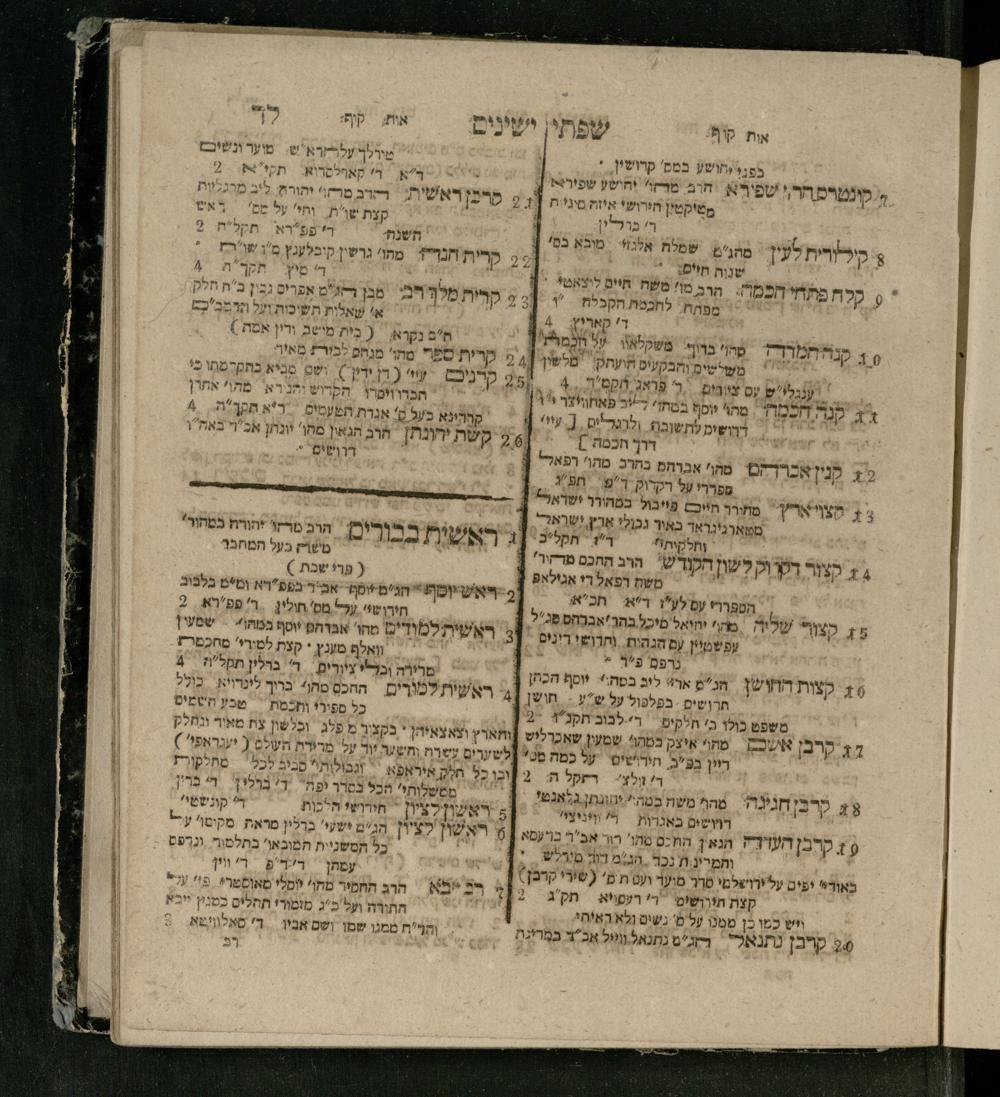 אות קוף:
שפתי ישינים
אות קוף:
לד
כפני יהושע במס' קדושין
7 קונטרס הר"י שפירא הרב מהו' יהושע שפירא
מטיקטין חידושי איזה סוגיות
ד' ברלין
8 קילורית לעין מהג"מ שמלה אלגזי מובא בס'
שנות חיים
9 קלח פתחי חכמה הרב מו' משה חיים לוצאטי
מפתח לחכמת הקבלה
ד' קאריץ 4
10 קנה המדה מהו' ברוך משקלאוו על חכמת
משלשים והבקעים הועתק מלשון
ענגלי"ש עם ציורים ד' פראג תקמ"ד 4
11 קנה חכמה מהו' יוסף במהו' ליב פאחוויצר
דרושים לתשובה ולרגלים [ עיי'
דרך חכמה ]
12 קנין אברהם מהו' אברהם בהרב מהו' רפאל
ספרדי על דקדוק ד"מ תפ"ג
13 קצוי ארץ מהורר חיים פייבול במהורר ישראל
מטארניגראד באיר גבולי ארץ ישראל
וחלקותי' ד"ז תקל"ב
14 קצור דקדוק לשון הקודש הרב החכם מהור'
משה רפאל די אגילאר
הספרדי עם לע"ז ד"א תכ"א
15 קצור של"ה מהו' יחיאל מיכל בהר' אברהם סג"ל
עפשטיין עם הגהות וחדושי דינים
נדפס פ"ד
16 קצות החושן הג"מ ארי' ליב במהו' יוסף הכהן
חדושים בפלפול על ש"ע חושן
משפט כולו ב' חלקים ד' לבוב תקנ"ו 2
17 קרבן אשם מהו' איצק במהו' שמעון שאכרליש
דיין בפ"ב, חידושים על כמה מס'
ד' זולצ' תקל ה 2
18 קרבן חגיגה מהו' משה במהו' יהונתן גלאנטי
דרושים באגדות ד' וויניציי'
19 קרבן העדה הגאון החכם מהו' דוד אב"ד בדעסא
והמדינות נכד הג"מ דוד מירלש
באורי' יפים על ירושלמי סדר מועד ועט ת מ' (שירי קרבן)
קצת חידושים ד' דעסויא תק"ג 2
ויש כמו כן ממנו על ס' נשים ולא ראיתי
20 קרבן נתנאל הג"מ נתנאל ווייל אב"ד במדינת
טירלך על הרא"ש מועד ונשים
ד"א ד' קארלסרוא תקי"א 2
21 קרבן ראשית הרב מהו' יהודה ליב מרגליות
קצת שו"ת וחי' על מס' ראש
השנה ד' פפ"דא תקל"ח 2
22 קרית חנה מהו' גרשון קובלענץ ס"ו שו"ת
ד' מיץ תקך"ה 4
23 קרית מלך רב מבן הג"מ אפרים נבון ב"ח חלק
א' שאלות תשיבות ועל הרמב"ם
ח"ב נקרא ( בית מישב ודין אמת )
24 קרית ספר מהו' מנחם לבית מאיר
25 קרנים עיי' ( דן ידין ) ושם מביא בהקדמתו כי
חברו ויסדו הקדוש והנורא מהו' אהרן
קרדינא בעל ס' אגרת הטעמים ד"א תקך"ה 4
26 קשת יהונתן הרב הגאון מהו' יונתן אב"ד באה"ו
דרושים
1 ראשית בכורים הרב מהו' יהודה במהור'
משה בעל המחבר
( פרי שבת )
2 ראש יוסף הג"מ יוסף אב"ד בפפ"דא ומ"מ בלבוב
חידושי' על מס' חולין ד' פפ"דא 2
3 ראשית למודים מהו' אברהם יוסף במהו' שמעון
וואלף מענץ קצת למודי' מחכמת
מדידה וכלי ציורים ד' ברלין תקל"ה 4
4 ראשית למודים החכם מהו' ברוך לינדויא כולל
כל ספורי וחכמת טבע השמים
והארץ וצאצאיהן בקצור מפלג ובלשון צח מאוד ונחלק
לשערים עשרה והשער יוד על מדידת העולם ( יעגראפי' )
ובו כל חלק איראפא וגבולותי' סביב לכל מחלקות
ממשלותי' הכל בסדר יפה ד' ברלין ד' ברין
5 ראשון לציון חידושי הלכות ד' קונשטי'
6 ראשון לציון הג"מ ישעי' ברלין מראה מקומו' על
כל המשניות המובאו' בתלמוד ונדפס
עמהן ד"ד"פ ד' ווין
7 רב ייבא הרב החסיד מהו' יוסלי מאוסטרי פי' על
התורה ועל כ"ג מזמורי תהלים כמנין ייבא
והר"ת ממנו שמו ושם אביו ד' סאלוויטא 3
רב